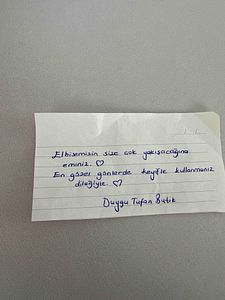 Elbisemizin size çok yakışacağına
eminiz. ♡
En güzel günlerde keyifle kullanmanız
dileğiyle. ♡
Duygu Tufan Butik